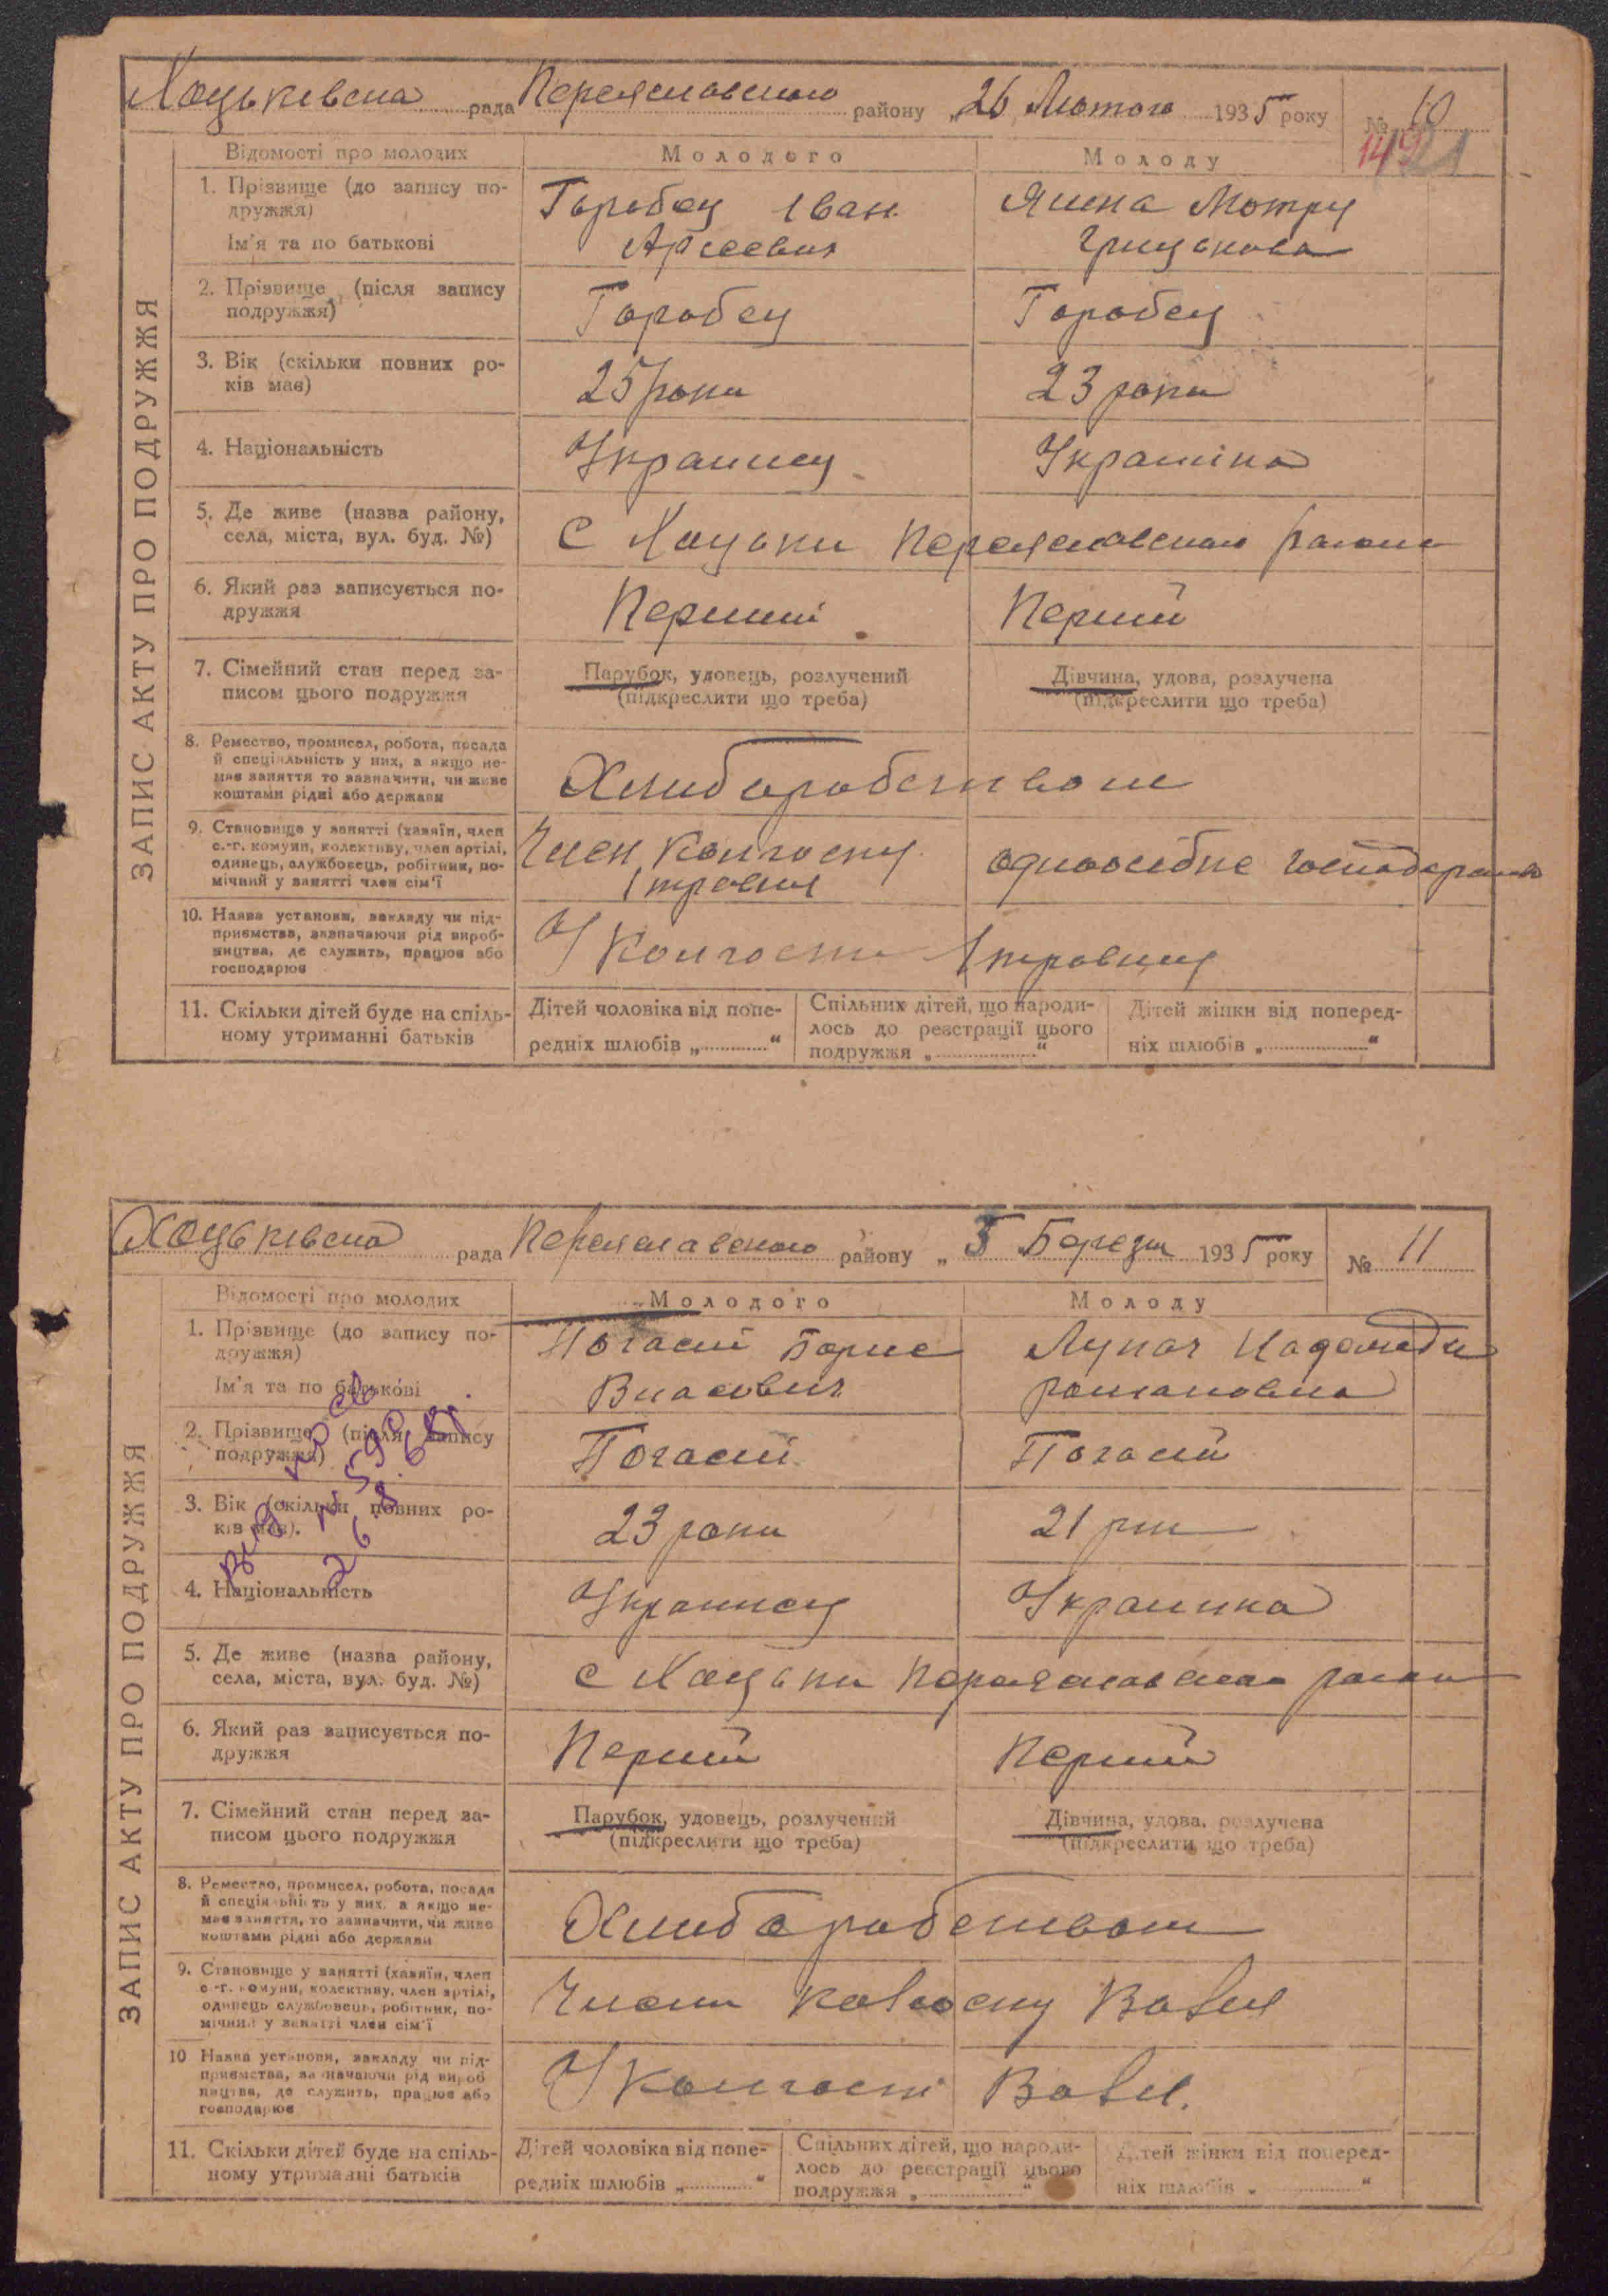 Хоцьківська рада Переяславського району „26 Лютого 1935 року № 10
1421
ЗАПИС АКТУ ПРО ПОДРУЖЖЯ
Відомості про молодих Молодого Молоду
1. Прізвище (до запису по- Горобец Іван Яшна Мотру
дружжя)
Ім'я та по батькові Арсеевич Грицькова
2. Прізвище (після запису Горобец Горобец
подружжя)
3. Вік (скільки повних ро- 25 роки 23 роки
ків має)
4. Національність Украинец Украінка
5. Де живе (назва району, С Хоцьки Переяславського району
села, міста, вул. буд. №)
6. Який раз записується по- Перший Перший
дружжя
7. Сімейний стан перед за- Парубок, удовець, розлучений Дівчина, удова, розлучена
писом цього подружжя (підкреслити що треба) (підкреслити що треба)
8. Ремество, промисел, робота, посада
й спеціяльність у них, а якщо не-
має заняття то зазначити, чи живе Хлиборобством
коштами рідні або держави
9. Становище у занятті (хазяїн, член Член Колгоспу одноосібне господарство
с.-г. комуни, колективу, член артілі, 1 травня
одинець, службовець, робітник, по-
мічний у занятті член сім'ї
10. Назва установи, закладу чи під- У Колгоспи 1 травня
приємства, зазначаючи рід вироб-
ництва, де служить, працює або
господарює
11. Скільки дітей буде на спіль- Дітей чоловіка від попе- Спільних дітей, що народи- Дітей жінки від поперед-
ному утриманні батьків редніх шлюбів „ “ лось до реєстрації цього ніх шлюбів „ “
подружжя „ “
Хоцьківська рада Переяславського району „ 5 Березня 1935 року № 11
ЗАПИС АКТУ ПРО ПОДРУЖЖЯ
Відомості про молодих Молодого Молоду
1. Прізвище (до запису по- Погасій Борис Лупач
дружжя)
Ім'я та по батькові Власович романовна
2. Прізвище (після запису Погасій Погасій
подружжя)
3. Вік (скільки повних ро- 23 роки 21 рік
ків має).
4. Національність Украинец Украинка
5. Де живе (назва району, с Хоцьки Переяславського району
села, міста, вул. буд. №)
6. Який раз записується по- Перший Перший
дружжя
7. Сімейний стан перед за- Парубок, удовець, розлучений Дівчина, удова, розлучена
писом цього подружжя (підкреслити що треба) (підкреслити що треба)
8. Ремество, промисел, робота, посада
й спеціяльність у них, а якщо не-
має заняття, то зазначити, чи живе Хлиборобством
коштами рідні або держави
9. Становище у занятті (хазяїн, член
с.-г. комуни, колективу, член артілі, Члени колгоспу
одинець службовець, робітник, по-
мічний у занятті член сім'ї
10 Назва установи, закладу чи під- У колгоспі
приємства, зазначаючи рід вироб
ництва, де служить, працює або
господарює
11. Скільки дітей буде на спіль- Дітей чоловіка від попе- Спільних дітей, що народи- Дітей жінки від поперед-
ному утриманні батьків редніх шлюбів „ “ лось до реєстрації цього ніх шлюбів „ “
подружжя „ “